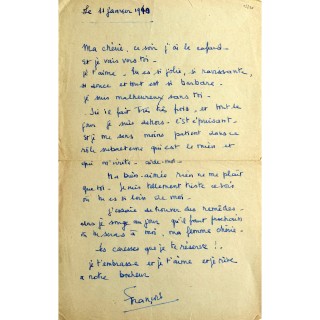 Le 11 janvier 1940
Ma chérie, ce soir j'ai le cafard -
Et je vais vers toi -
je t'aime - Tu es si jolie, si ravissante,
si douce et tout est si barbare -
je suis malheureux sans toi -
Ici il fait très très froid, et tout le
jour je suis dehors - c'est épuisant -
Et je me sens moins patient dans ce
rôle subalterne qui est le mien et
qui m'irrite - aide-moi -
Ma bien-aimée rien ne me plaît
que toi - Je suis tellement triste ce soir
tu es si loin de moi -
J'essaie de trouver des remèdes -
alors je songe au jour qu'il faut prochain
tu seras à moi, ma femme chérie -
les caresses que je te réserve ! -
je t'embrasse et je t'aime et je rêve
à notre bonheur
François